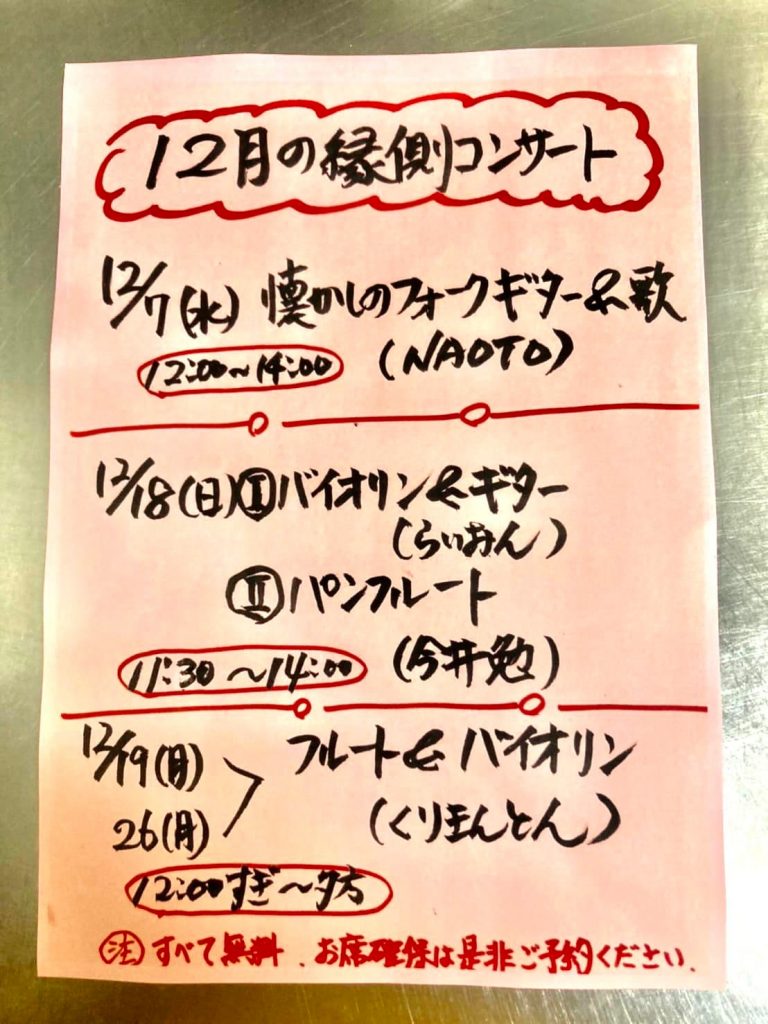 12月の縁側コンサート
12/7(水) 懐かしのフォークギター&歌
12:00〜14:00 (NAOTO)
12/18(日)Ⅰバイオリン&ギター
(らいおん)
Ⅱパンフルート
11:30〜14:00 (今井勉)
12/19(月) フルート&バイオリン
26(月) (くりまんとん)
12:00すぎ〜夕方
注 すべて無料、お席確保は是非ご予約ください.